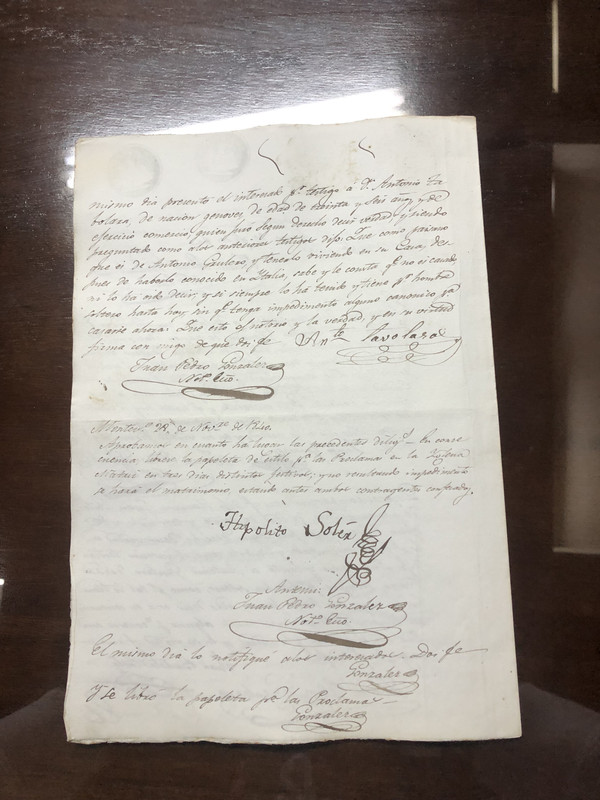 mismo dia presentó el interesado pr. testigo á Dn. Antonio Ta
bolara, de nacion genoves, de edad de treinta y seis años, y de
exercicio comercio quien juró segun derecho decir verdad, y siendo
preguntado como alos anteriores testigos dijo: Que como paisano
que és de Antonio y tenerlo viviendo en su Casa, des-
pues de haberlo conocido en Italia, sabe y le consta qe. no és casado
ni lo ha oido decir, y si siempre lo ha tenido y tiene pr. hombre
soltero hasta hoy sin qe. tenga impedimento alguno canonico pa.
casarse ahora: Que esto és notorio y la verdad, y en su virtud
firma con migo de que doi fe
Anto. Tavolara
Juan Pedro Gonzalez
Noto. Eco.
de Novre. de
Aprobamos en cuanto ha lugar las precedentes diligs. En conse
cuencia librese la papeleta de estilo pa. las Proclamas en la Iglesia
Matriz en tres dias distintos festivos; y no resultando impedimento
se hará el matrimonio, estando antes ambos contrayentes confesados.
Hipolito Soler
Antemi:
Juan Pedro Gonzalez
Noto. Eco.
El mismo dia lo notifiqué alos interesados. Doi fe
Gonzalez
Y se libró la papeleta pa. las Proclamas
Gonzalez